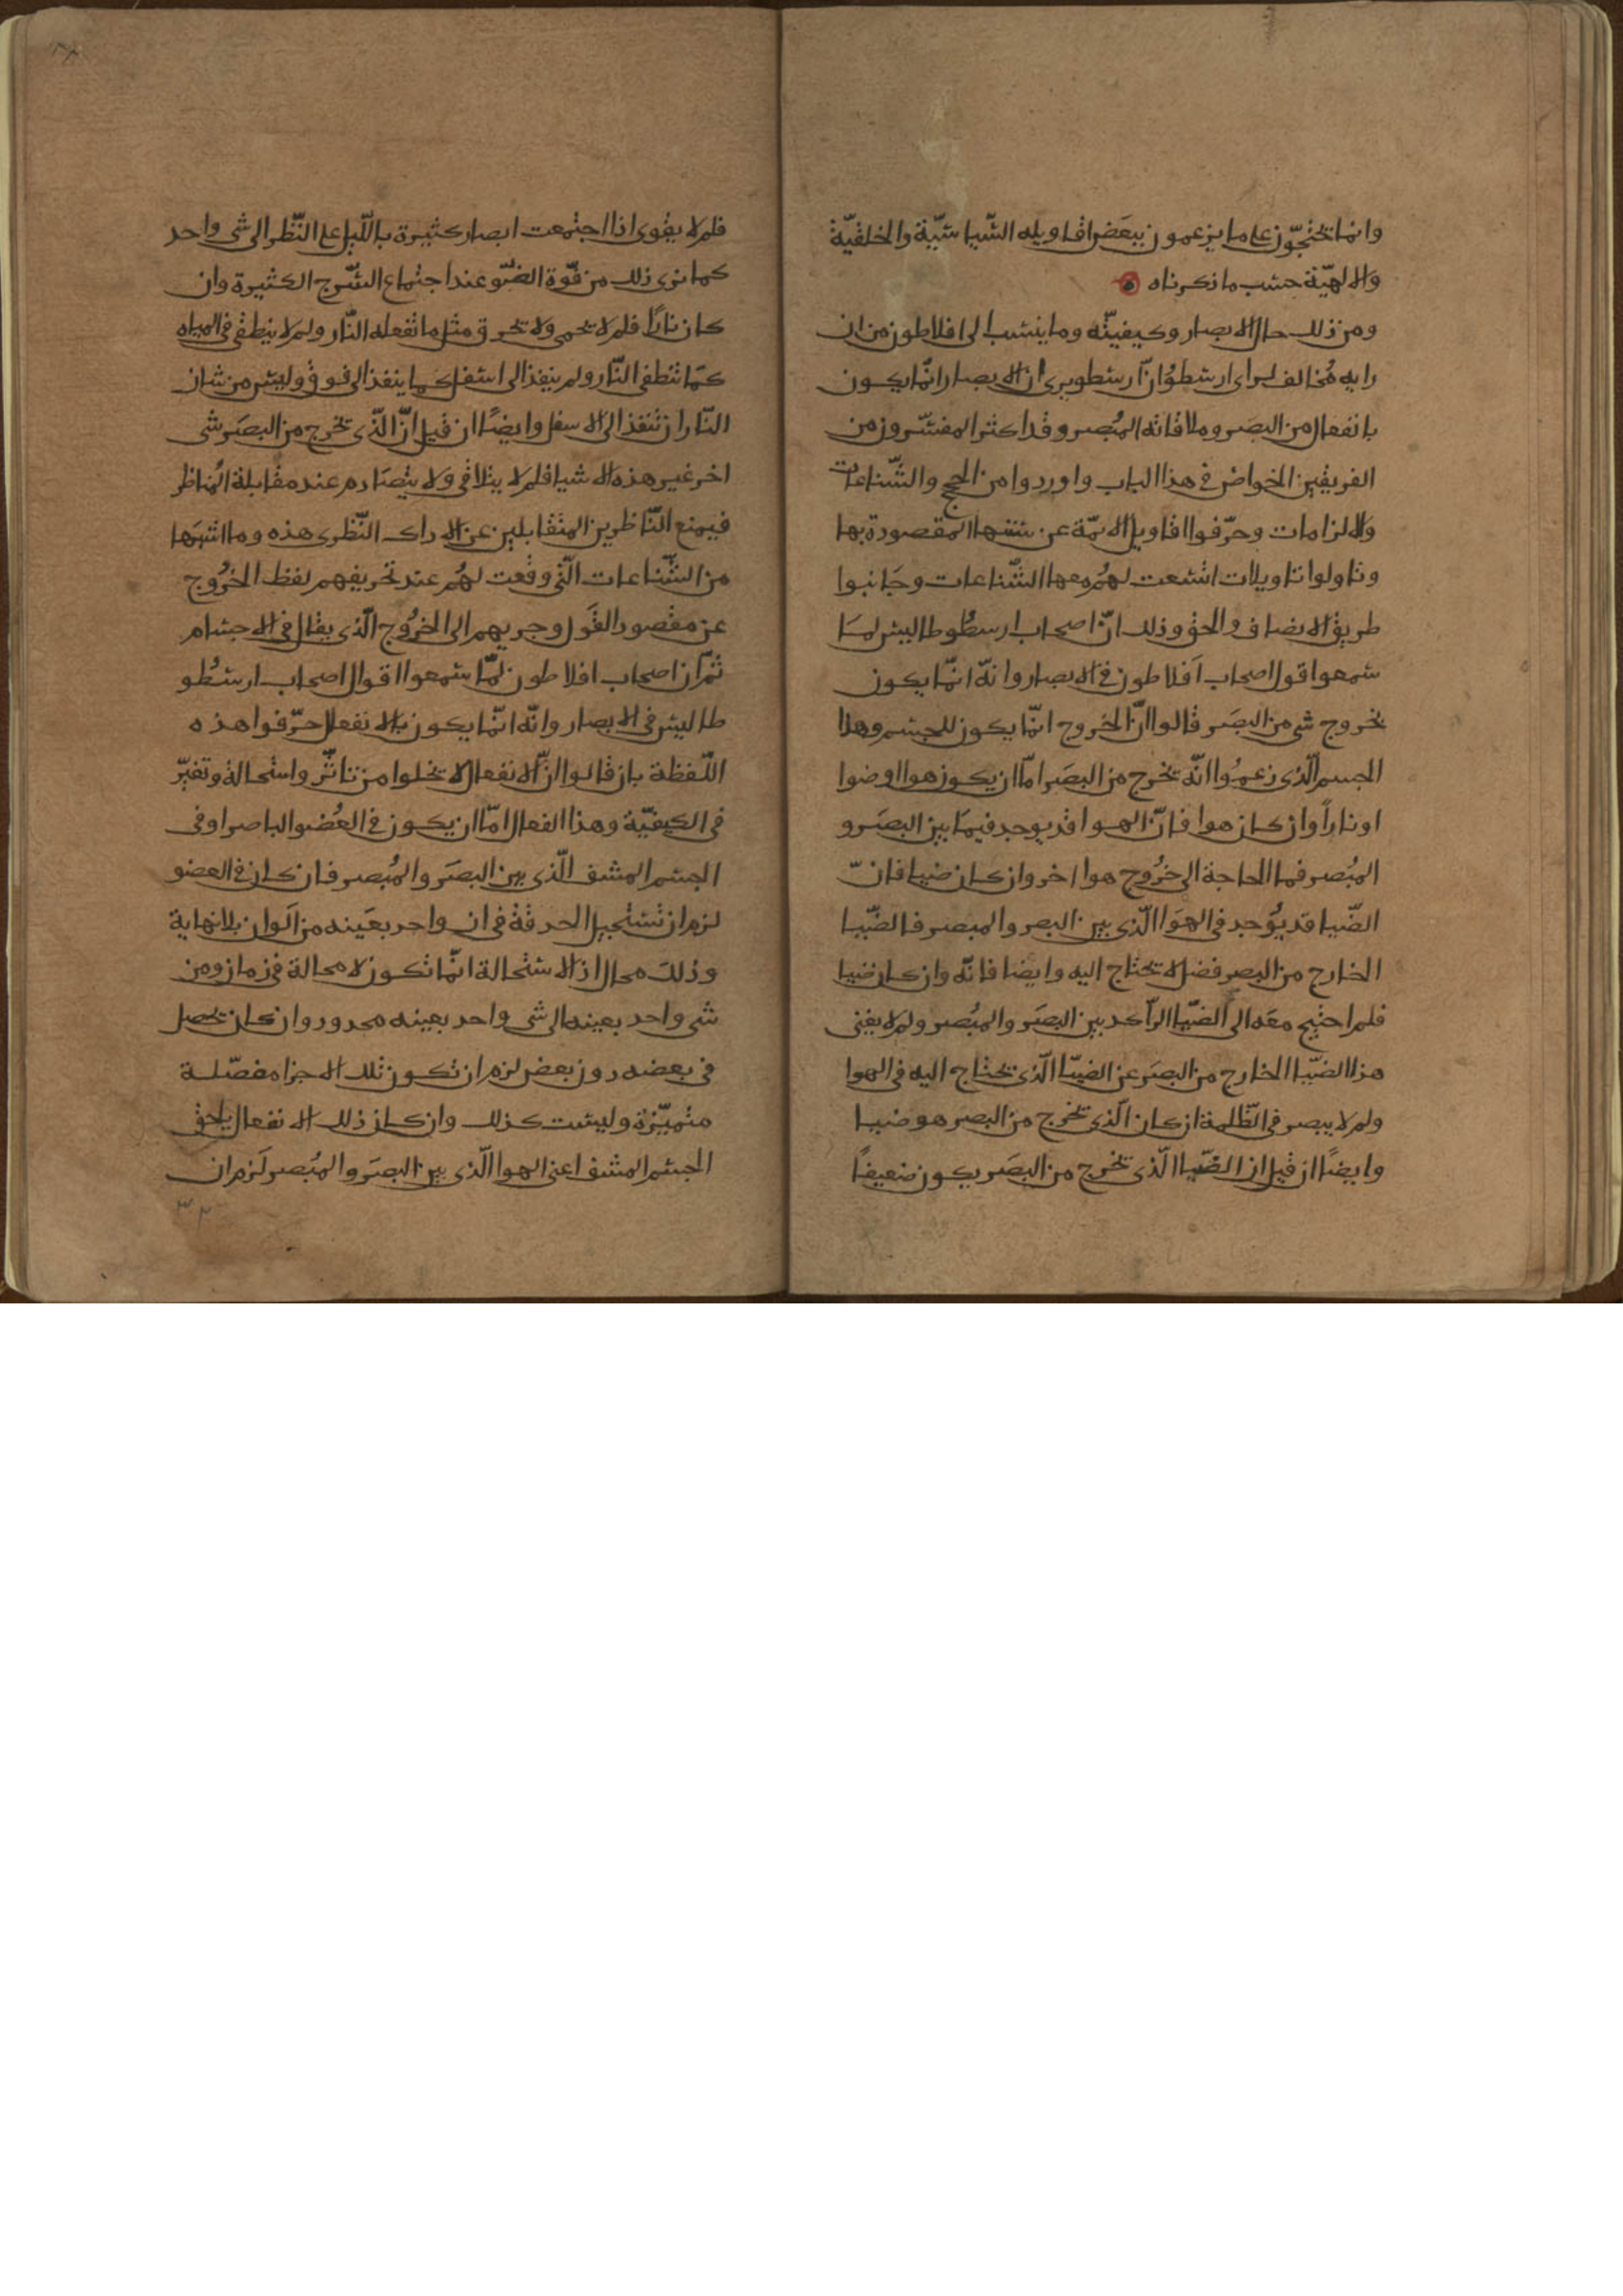 وانما يحتجّون على ما يزعمون ببعَض اقاويله السّياسّية والخلقيّة
والالهيّة حسب ما ذكرناه
ومن ذلك حال الابصار وكيفيته وما ينسب الى افلاطون من ان
رايه مُخالف لراى ارسطوُ انّ ارسطو يرى ان الابصار انّما يكون
بانفعال من البصَر وملاقاته المُبصر وقد اكثر المفسّرون من
الفريقين الخواض فى هذا الباب واوردوا من الحجج والشّناعات
والالزامات وحرّفوا اقاويل الائمّة عن سننها المقصودة بها
وتاولوا تاويلات اتسعت لهُم معها الشّناعات وجَانبوا
طريق الانصاف والحق وذلك انّ اصحاب ارسطُوطاليس لمَا
سمعوا قول اصحاب اَفلاطون فى الابصار وانّه انّما يكون
بخروج شى من البصَر قالوا انّ الخروج انّما يكون للجسم وهذا
الجسم الّذى زعمُوا انّه يخرج من البصَر امّا ان يكون هوا او ضوا
او ناراً وان كان هوا فانّ الهوا قد يوجد فيمَا بين البصَر و
المبُصر فما الحاجة الى خرُوج هوا اخر وان كان ضيا فانّ
الضّيا قد يُوَجد فى الهوَا الّذى بين البصر والمبصر فالضّيا
الخارج من البصر فضل لا يحتاج اليه وايضا فانّه وان كان ضيا
فلم احتيج معَه الى الضّيا الرّاكد بين البصَر والمبُصر ولم لا يغنى
هذا الضّيا الخارج من البصَر عن الضيّا الّذى يحتاج اليه فى الهوا
ولم لا يبصر فى الظّلمة ان كان الّذى يخرج من البصر هو ضيا
وايضًا ان قيل ان الضّيا الّذى يخرج من البصَر يكون ضعيفًا
فلم لا يقوى اذا اجتمعت ابصار كثيرة باللّيل على النّظر الى شى واحد
كما نرى ذلك من قوّة الضّو عند اجتماع السّرج الكثيرة وان
كان ناراً فلم لا تحمى ولا تحرق مثل ما تفعله النّار ولم لا ينطفى فى المياه
كمَا تنطفى النّار ولم ينفذ الى اسفل كما ينفذ الى فوق وليس من شان
النّار ان تنفذ الى الاسفل وايضًا ان قيل انّ الّذى يخرج من البصَر شى
اخر غير هذه الاشيا فلم لا يتلاقى ولا يتصَادم عند مقابلة المُناظر
فيمنع النّاظرين المتقابلين عن الادراك النّظرى هذه وما اشبهَها
من الشّناعات الّتى وقعت لهُم عند تحريفهم لفظ الخرُوج
عن مقصود القَول وجريهم الى الخرُوج الّذى يقال فى الاجسام
ثمّ ان اصحاب افلاطون لمّا سمعوا اقوال اصحاب ارسُطو
طاليس فى الابصار وانّه انّما يكون بالانفعال حرّفوا هذه
اللّفظة بان قالوا انّ الانفعال لا يخلوا من تاثّر واستحالة وتغيّر
فى الكيفيّة وهذا الفعال امّا ان يكون فى العُضو الباصر او فى
الجسم المشف الّذى بين البصَر والمُبصر فان كان فى العضو
لزم ان تستحيل الحدقة فى ان واحد بعَينه من اَلوان بلا نهاية
وذلك محال اذ الاستحالة انّما تكون لا محالة فى زمان ومن
شى واحد بعينه الى شى واحد بعينه محدود وان كان يحصل
فى بعضه دون بعض لزم ان تكون تلك الاجزا مفصّلة
متميّزة وليست كذلك وان كان ذلك الانفعال يلحق
الجسم المشف اعنى الهوا الّذى بين البصَر والمُبصر لَزم ان
٣٢